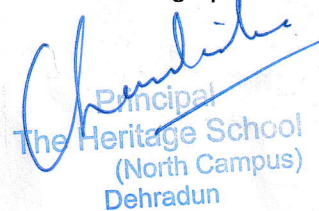 Principal
The Heritage School
(North Campus)
Dehradun